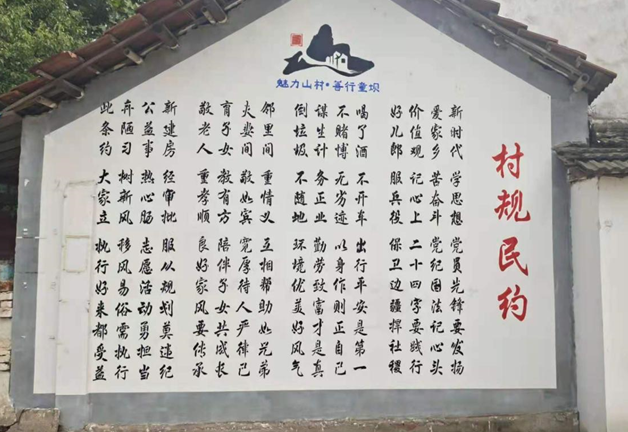 魅力山村·善行童坝
村规民约
新时代 学思想 党员先锋要发扬
爱家乡 苦奋斗 党纪国法记心头
价值观 记心上 二十四字要践行
好儿郎 服兵役 保卫边疆捍社稷
喝了酒 不开车 出行平安是第一
不赌博 无劣迹 以身作则正自己
谋生计 务正业 勤劳致富才是真
倒垃圾 不随地 环境优美好风气
邻里间 重情义 互相帮助如兄弟
夫妻间 敬如宾 宽厚待人严律己
育子女 教有方 陪伴子女共成长
敬老人 重孝顺 良好家风要传承
新建房 经审批 服从规划莫违纪
公益事 热心肠 志愿活动勇担当
弃陋习 树新风 移风易俗需执行
此条约 大家立 执行好来都受益